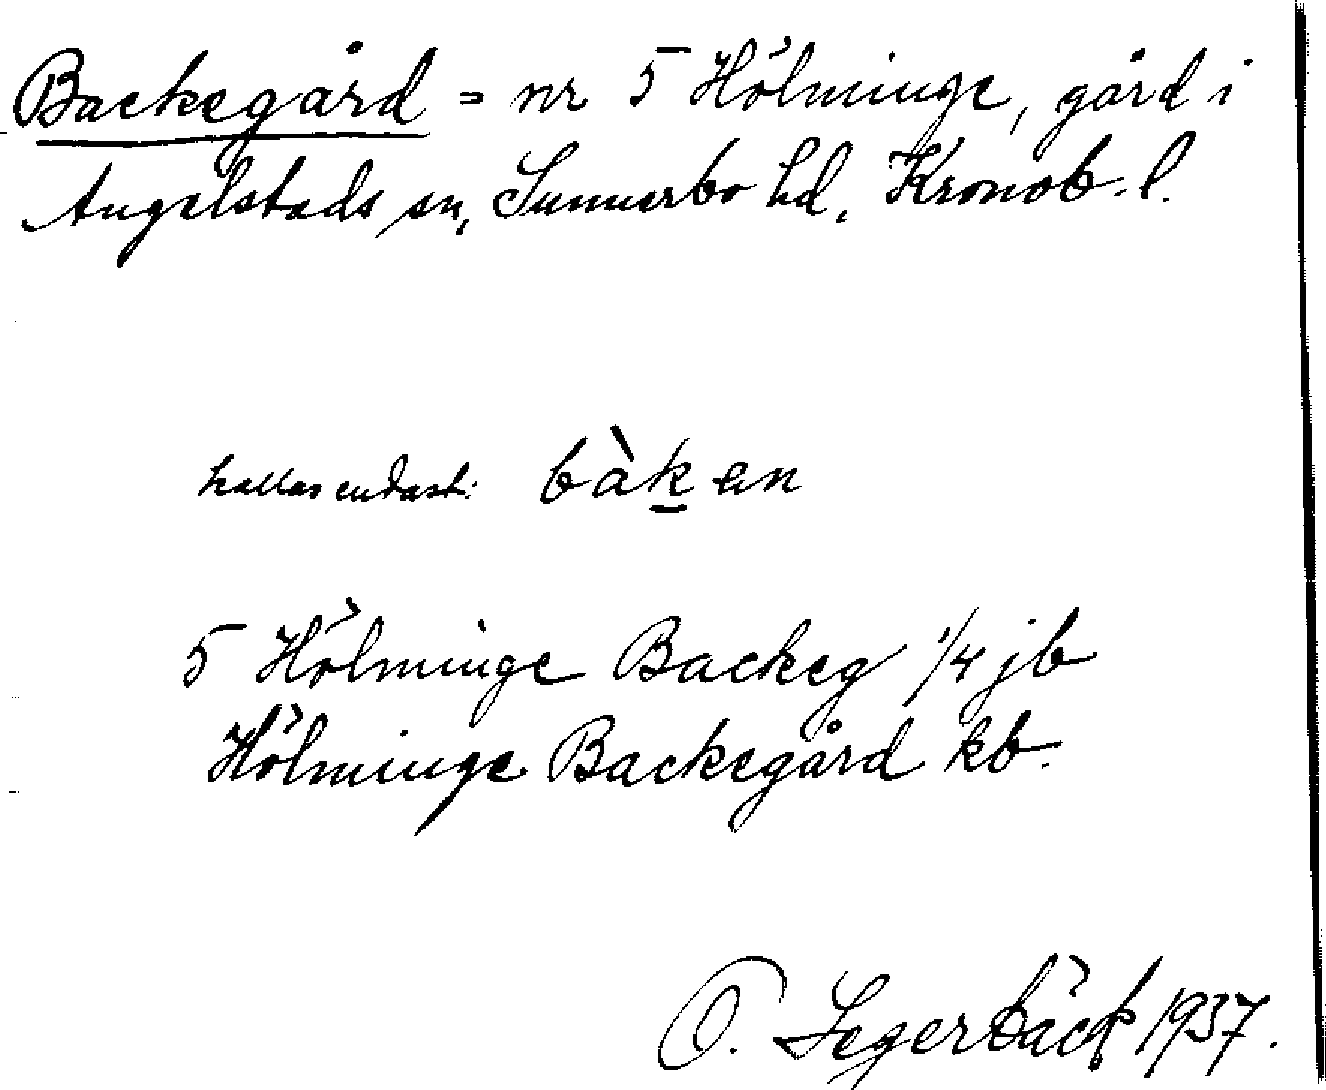 Backegård = nr 5 Hölminge, gård i
Angelstads sn, Sunnerbo hd, Kronob. l.
kallas endast: bàkan
5 Hölminge Backeg 1/4 jb
Hölminge Backegård kb.
O. Segerbäck 1937.